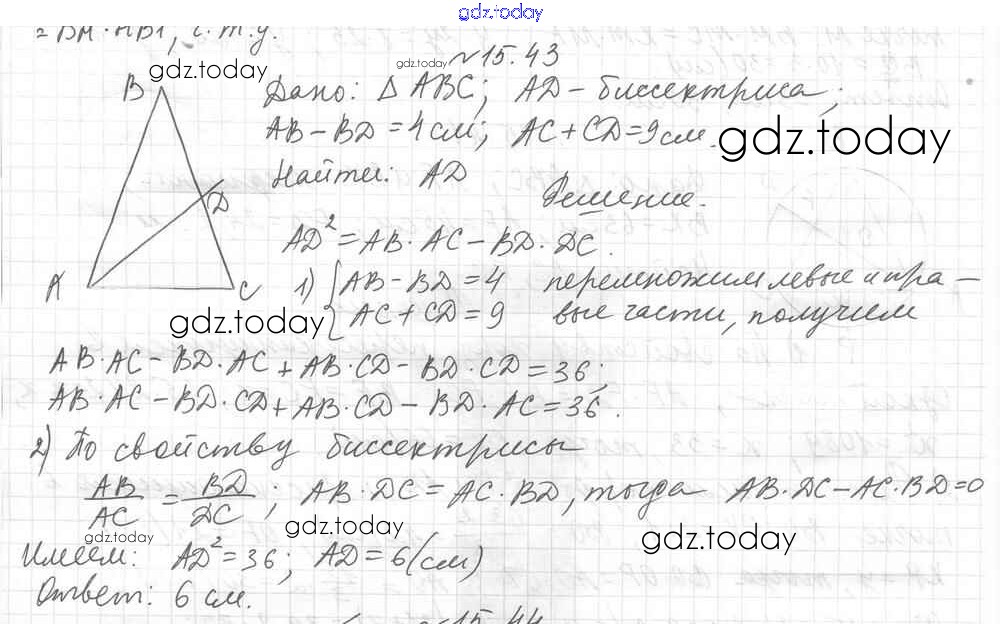 gdz.today
= BM · MB1, ч.т.д.
№15.43
gdz.today
gdz.today
B
Дано: △ABC; AD – биссектриса;
AB – BD = 4 см; AC + CD = 9 см.
gdz.today
Найти: AD
D
Решение.
AD² = AB · AC – BD · DC.
A
C
1) { AB – BD = 4 перемножим левые и пра –
AC + CD = 9 вые части, получим
gdz.today
AB · AC – BD · AC + AB · CD – BD · CD = 36;
AB · AC – BD · CD + AB · CD – BD · AC = 36.
2) По свойству биссектрисы
AB/AC = BD/DC; AB · DC = AC · BD, тогда AB · DC – AC · BD = 0
gdz.today
gdz.today
gdz.today
Имеем: AD² = 36; AD = 6 (см)
Ответ: 6 см.
№15.44